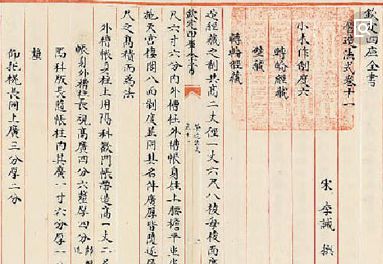 欽定四庫全書
營造法式卷十一
宋 李誡 撰
小木作制度六
轉輪經藏
壁藏
轉輪經藏
造經藏之制共高二丈徑一丈六尺八棱每棱面廣
尺六寸六分內外槽柱外槽帳身柱上腰檐平坐
欽定四庫全書
施天宮樓閣八面制度並同其名件廣厚皆隨逐
尺之高積而為法
外槽帳身柱上用隔科歡門帳帶造高一丈二尺
帳身外槽柱長視高廣四分六釐厚四分
隔科版長隨帳柱內其廣一寸六分厚一
釐
仰托榥長同上廣三分厚二分